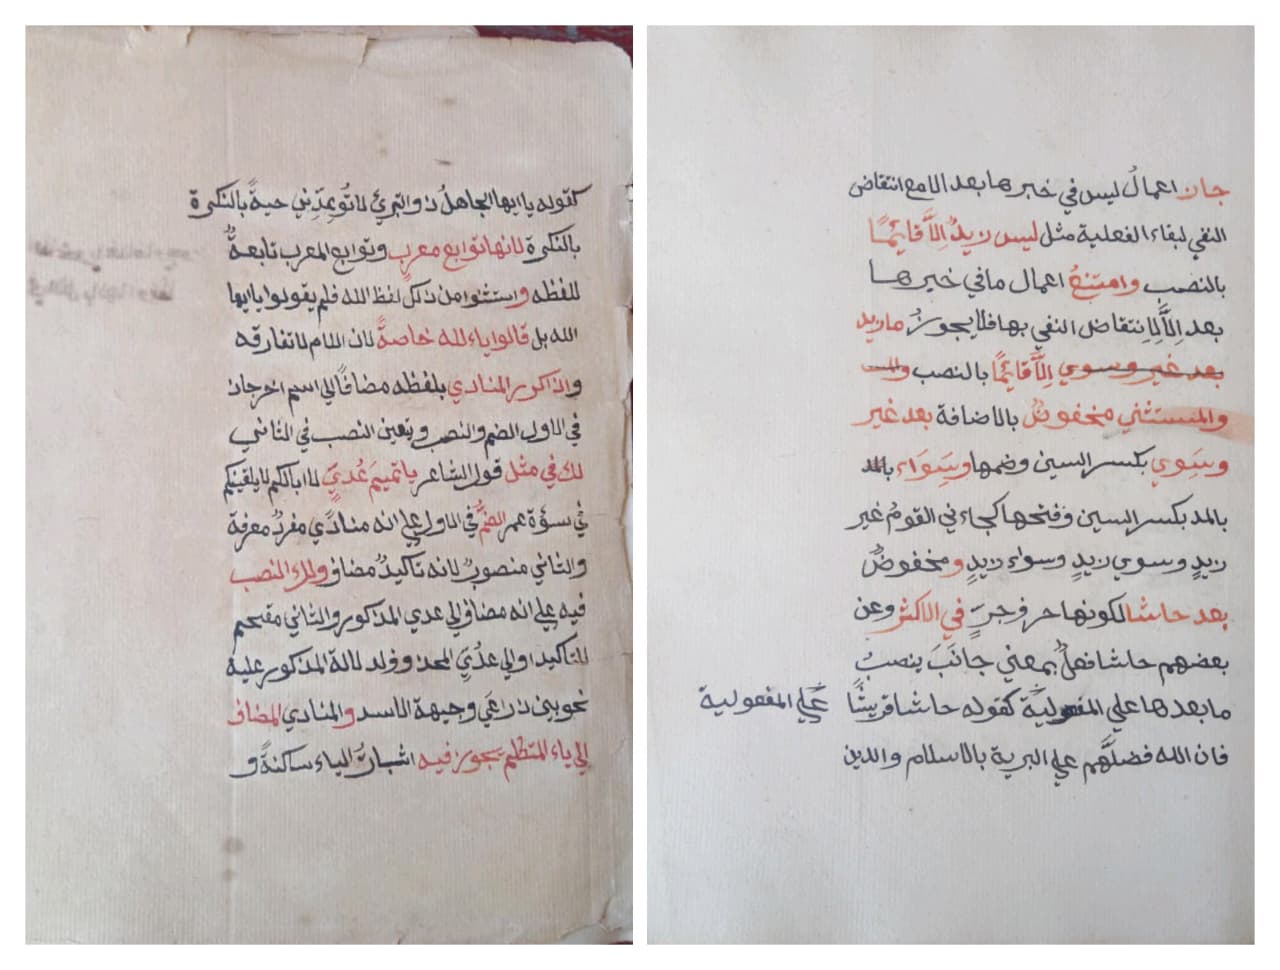 جان اعمالُ ليس في خبرها بعد الا مع انتقاض
النفي لبقاء الفعلية مثل ليس زيدٌ اِلاَّ قايمًا
بالنصب وامتنعُ اعمال ما في خبرها
بعد اِلاَّ لانتقاض النفي بها فلا يجوزُ ما زيد
بعد غير وسوي اِلاَّ قايمًا بالنصب والمـ
والمستثني مخفوضٌ بالاضافة بعد غير
وسِوي بكسر السين وضمها وسِوَاء بالمد
بالمد بكسر السين وفتحها كجاءني القومُ غير
زيدٍ وسوي زيدٍ وسواء زيدٍ ومخفوضٌ
بعد حاشا لكونها حرف جرٍّ في الاكثر وعن
بعضهم حاشا فعلٌ بمعني جانَبَ ينصبُ
ما بعدها علي المفعولية كقوله حاشا قريشًا
علي المفعولية
فان الله فضلَّهم علي البرية بالاسلام والدين
كقوله يا ايها الجاهلُ ذو التبريْ لا تُوعِدَنِّي حيةً بالنكرة
بالنكرة لانها توابع معربٍ وتوابع المعرب تابعةٌ
للفظه واستثنوا من ذلك لفظ الله فلم يقولوا يا ايها
الله بل قالوا ياء لله خاصةً لان اللام لا تفارقه
واذا كرر المنادي بلفظه مضافًا الي اسم اخر جان
في الاول الضم والنصب ويتعين النصب في الثاني
لك في مثل قول الشاعر يا تميمَ عُديّ لا ابالكم لا يلقينكم
في سؤة عمر الضمُّ في الاول علي انه منادًي مفردٌ معرفة
والثاني منصوبٌ لانه تاكيدٌ مضاف ولك النصب
فيه علي انه مضاف الي عدي المذكور والثاني مقحم
للتاكيد او الي عدُيّ المحذوف لدلالة المذكور عليه
نحو بين ذراعَي وجبهة الاسد والمنادي المضاف
الي ياء المتكلم يجوز فيه اثباتُ الياء ساكنةً و